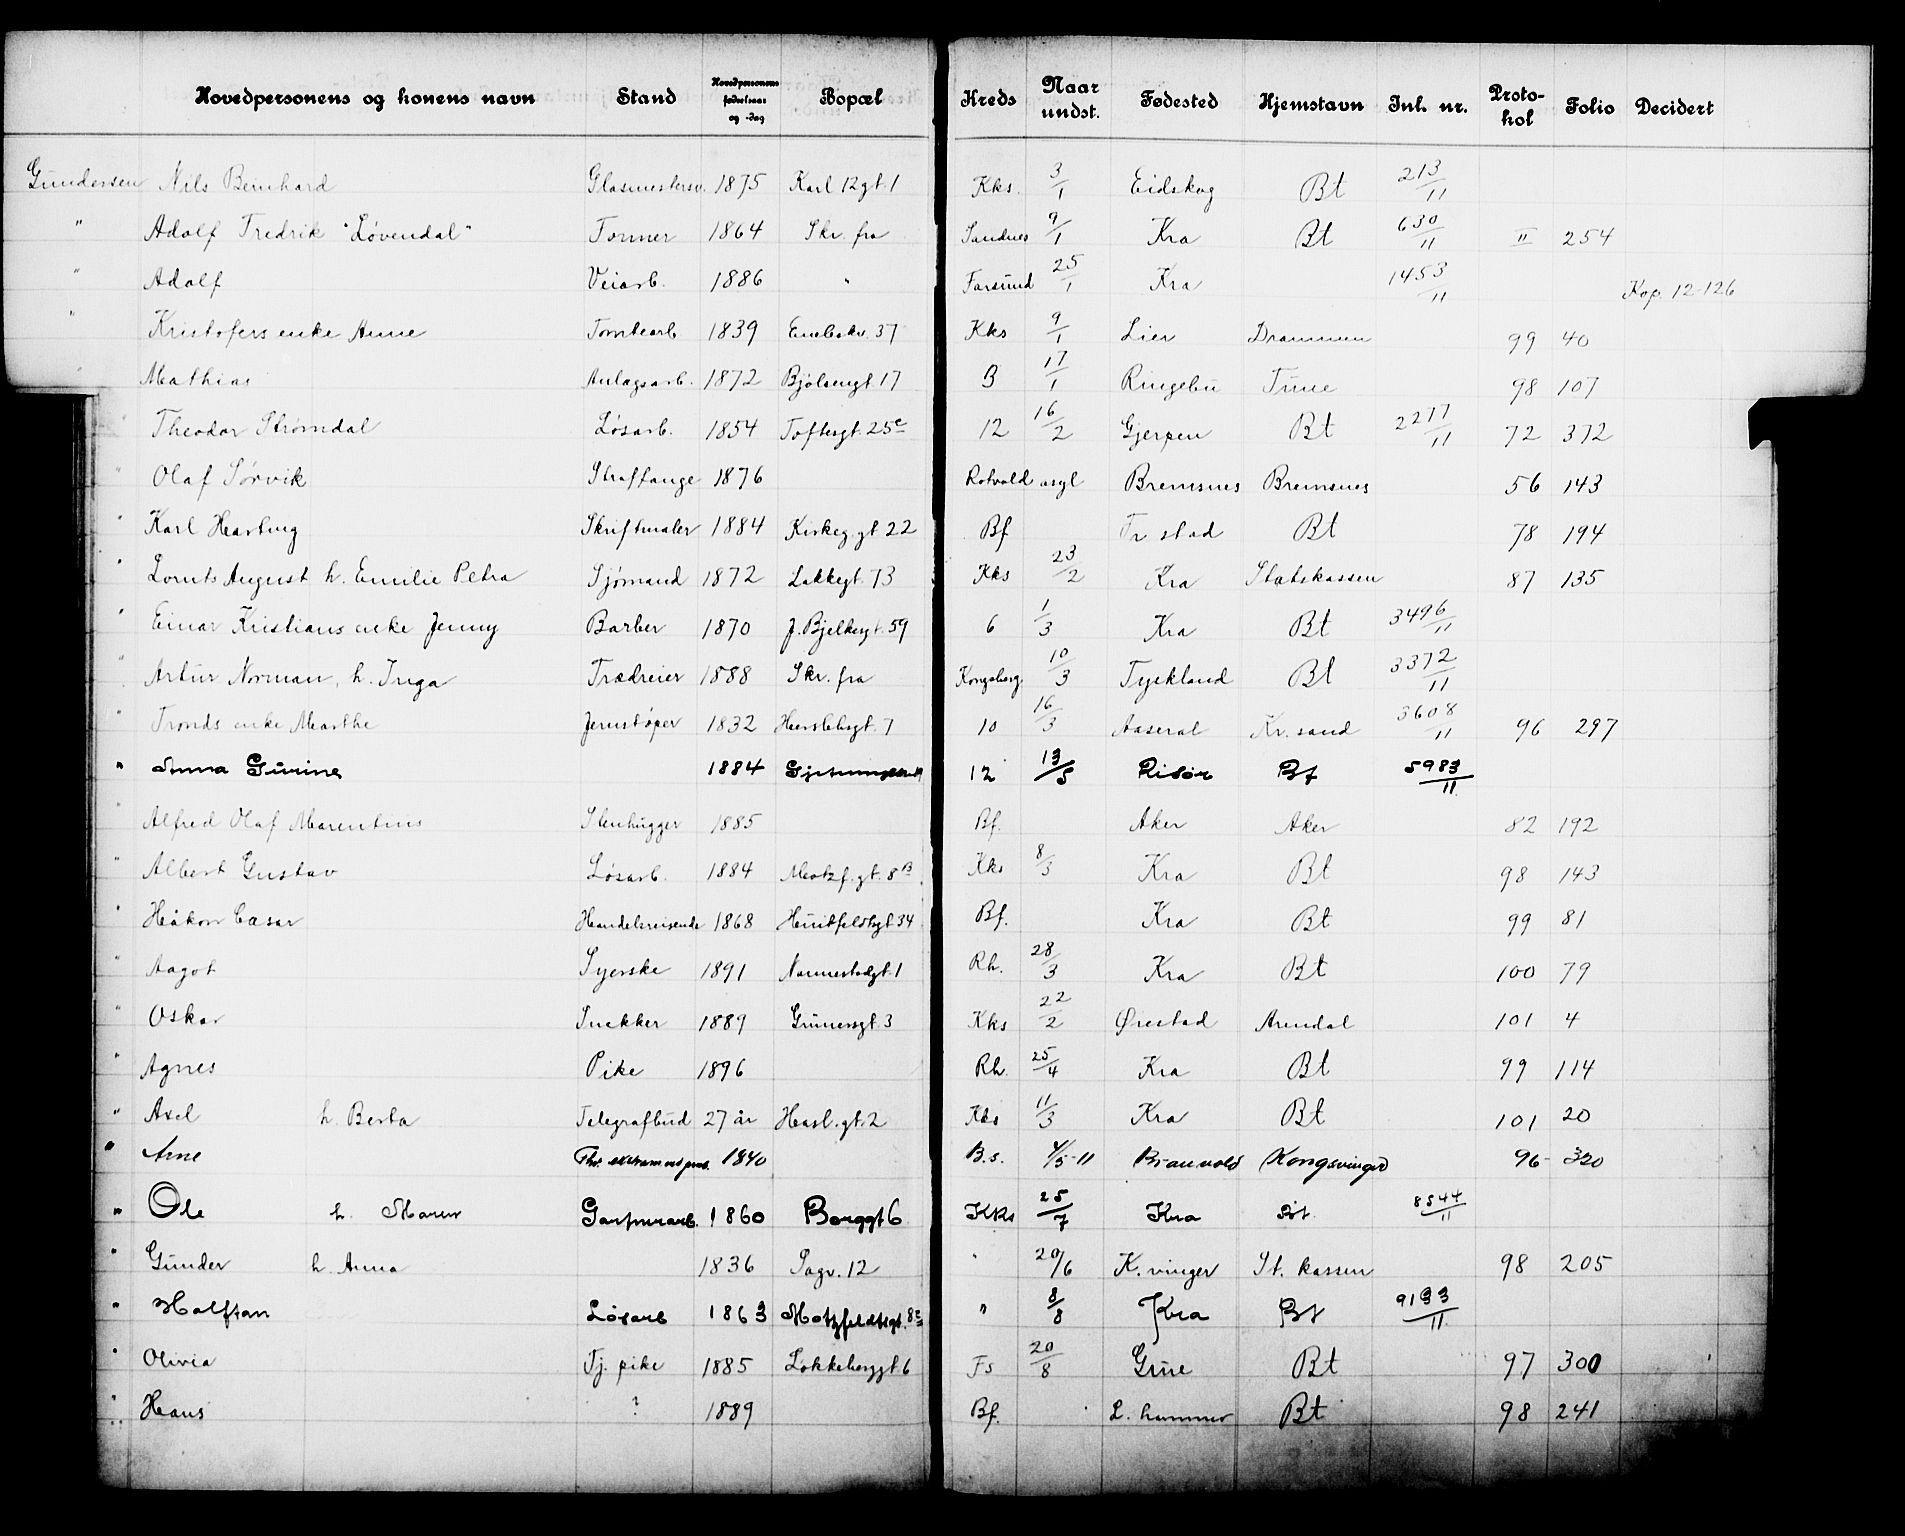 Hovedpersonens og konens navn Stand Hovedpersonens fødselsaar og -dag Bopæl Kreds Naar undst. Fødested Hjemstavn Inl. nr. Proto-kol Folio Decidert
Gundersen Nils Bernhard Glasmestersv. 1875 Karl 12 gt. 1 Kks. 3/1 Eidskog Bt 213/11
" Adolf Fredrik "Løvendal" Former 1864 Skr. fra Sandnes 9/1 Kra Bt 630/11 II 254
" Adolf Veiarb. 1886 " Farsund 25/1 Kra 1453/11 Kop. 12-126
" Kristofers enke Anne Tomtearb 1839 Enebakv. 37 Kks 9/1 Lier Drammen 99 40
Mathias Anlægsarb. 1872 Bjølsengt. 17 3 17/1 Ringebu Tune 98 107
" Theodor Strømdal Løsarb. 1854 Toftesgt. 25c 12 16/2 Gjerpen Bt 2277/11 72 372
" Olaf Sørvik Straffange 1876 Rotvold asyl Bremsnes Bremsnes 56 143
" Karl Hartvig Skriftmaler 1884 Kirkeg. gt. 22 Bf Fr. stad Bt 78 194
" Lorents August h. Emilie Petra Sjømand 1872 Lakkegt. 73 Kks 23/2 Kra Statskassen 87 135
" Einar Kristians enke Jenny Barber 1870 J. Bjelkesgt. 59 6 1/3 Kra Bt 3496/11
" Artur Norman, h. Inga Trædreier 1888 Skr. fra Kongsberg 10/3 Tyskland Bt 3372/11
" Tronds enke Marthe Jernstøper 1832 Herslebsgt. 7 10 16/3 Aaseral Kr. sand 3608/11 96 297
" Anna Gurine 1884 12 13/5 Risør Bt 5983/11
" Alfred Olaf Marentius Stenhugger 1885 Bf. Aker Aker 82 192
" Albert Gustav Løsarb. 1884 Motzf. gt. 8B Kks 8/3 Kra Bt 98 143
" Håkon Cæsar Handelsreisende 1868 Huitfeldtsgt. 34 Bf. Kra Bt 99 81
" Aagot Syerske 1891 Nannestadgt. 1 Rh. 28/3 Kra Bt 100 79
" Oskar Snekker 1889 Grünersgt. 3 Kks 22/2 Øiestad Arendal 101 4
" Agnes Pike 1896 Rh. 25/4 Kra Bt 99 114
" Axel h. Berta Telegrafbud 27 år Hasl. gt. 2 Kks 11/3 Kra Bt 101 20
" Arne 1840 B.s. 4/5-11 Brandvold Kongsvinger 96- 320
" Ole h. Maren Garfverarb. 1860 Borggt 6 KKs 25/7 Kra Bt. 8544/11
" Gunder h. Anna 1836 Sagv. 12 " 20/6 K. vinger St. kassen 98 205
" Halfdan Løsarb 1863 Motzfeldtsgt. 8 " 8/8 Kra Bt 9193/11
" Olivia Tj. pike 1885 Løkkeberggt. 6 Fs 20/8 Grue Bt 97 300
" Hans ? 1889 Bf. L. hammer Bt 98 241